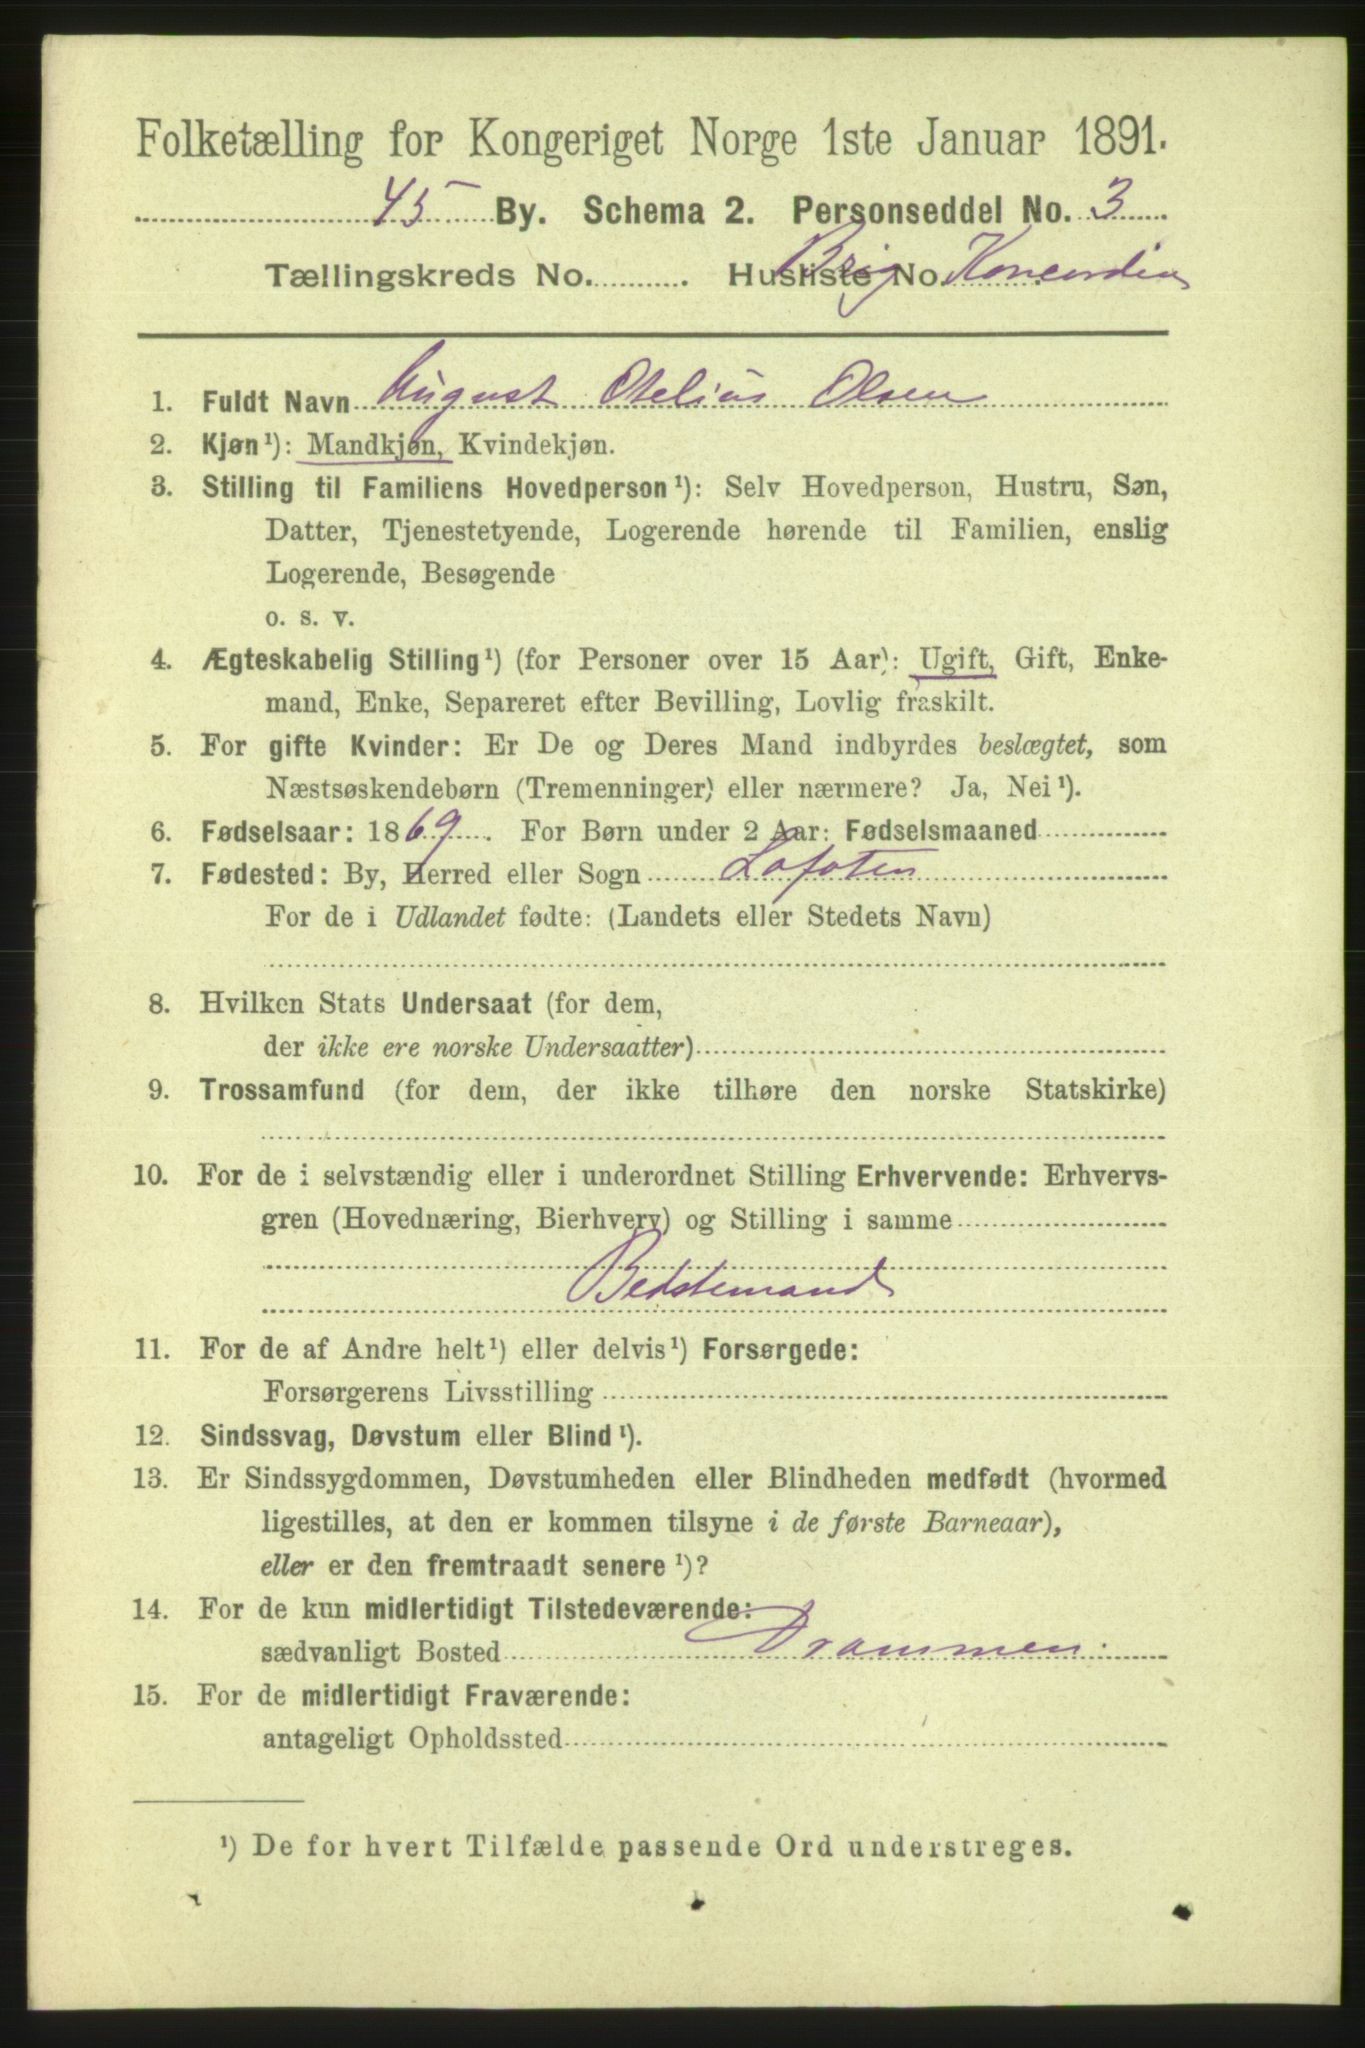 Folketælling for Kongeriget Norge 1ste Januar 1891.
45 By. Schema 2. Personseddel No. 3
Tællingskreds No. Husliste No. Brig Koncordia
1. Fuldt Navn August Otelius Olsen
2. Kjøn¹): Mandkjøn, Kvindekjøn.
3. Stilling til Familiens Hovedperson¹): Selv Hovedperson, Hustru, Søn,
Datter, Tjenestetyende, Logerende hørende til Familien, enslig
Logerende, Besøgende
o. s. v.
4. Ægteskabelig Stilling¹) (for Personer over 15 Aar): Ugift, Gift, Enke-
mand, Enke, Separeret efter Bevilling, Lovlig fraskilt.
5. For gifte Kvinder: Er De og Deres Mand indbyrdes beslægtet, som
Næstsøskendebørn (Tremenninger) eller nærmere? Ja, Nei¹).
6. Fødselsaar: 1869. For Børn under 2 Aar: Fødselsmaaned
7. Fødested: By, Herred eller Sogn Lofoten
For de i Udlandet fødte: (Landets eller Stedets Navn)
8. Hvilken Stats Undersaat (for dem,
der ikke ere norske Undersaatter)
9. Trossamfund (for dem, der ikke tilhøre den norske Statskirke)
10. For de i selvstændig eller i underordnet Stilling Erhvervende: Erhvervs-
gren (Hovednæring, Bierhverv) og Stilling i samme
Bedstemand
11. For de af Andre helt¹) eller delvis¹) Forsørgede:
Forsørgerens Livsstilling
12. Sindssvag, Døvstum eller Blind¹).
13. Er Sindssygdommen, Døvstumheden eller Blindheden medfødt (hvormed
ligestilles, at den er kommen tilsyne i de første Barneaar),
eller er den fremtraadt senere¹)?
14. For de kun midlertidigt Tilstedeværende:
sædvanligt Bosted Drammen.
15. For de midlertidigt Fraværende:
antageligt Opholdssted
¹) De for hvert Tilfælde passende Ord understreges.